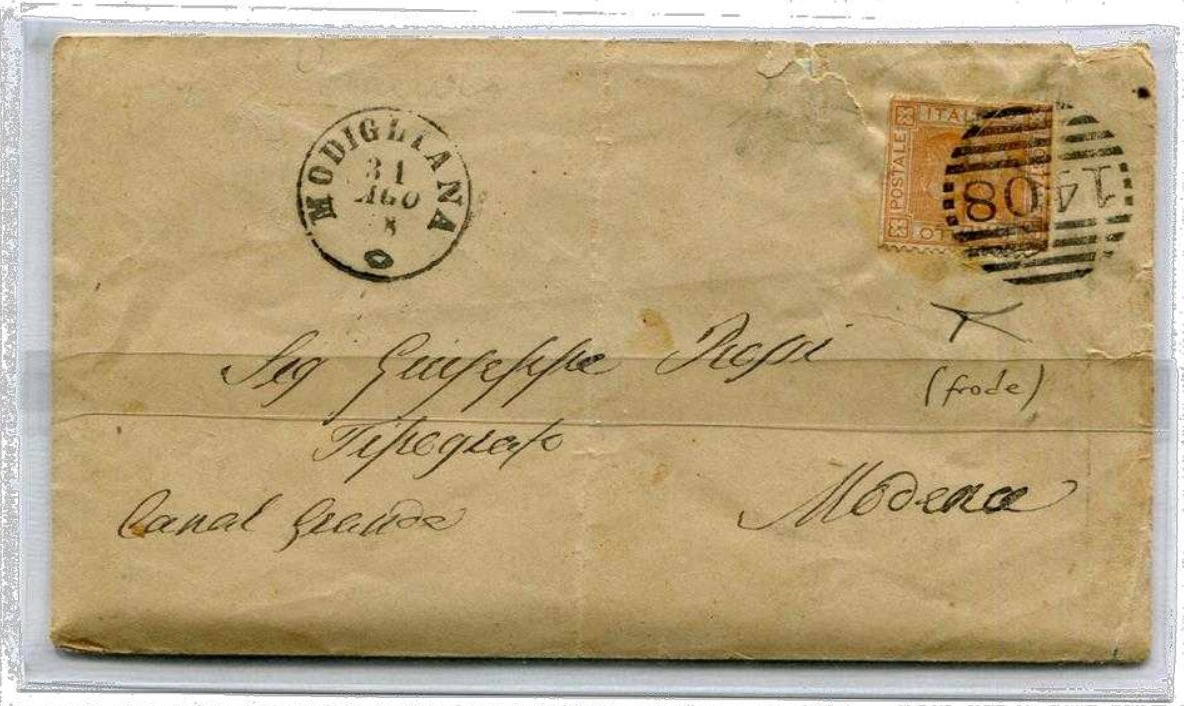 MODIGLIANA
31
AGO
ITAL
POSTALE
1408
Sig Giuseppe Rossi
(frode)
Tipografo
Canal Grande
Modena